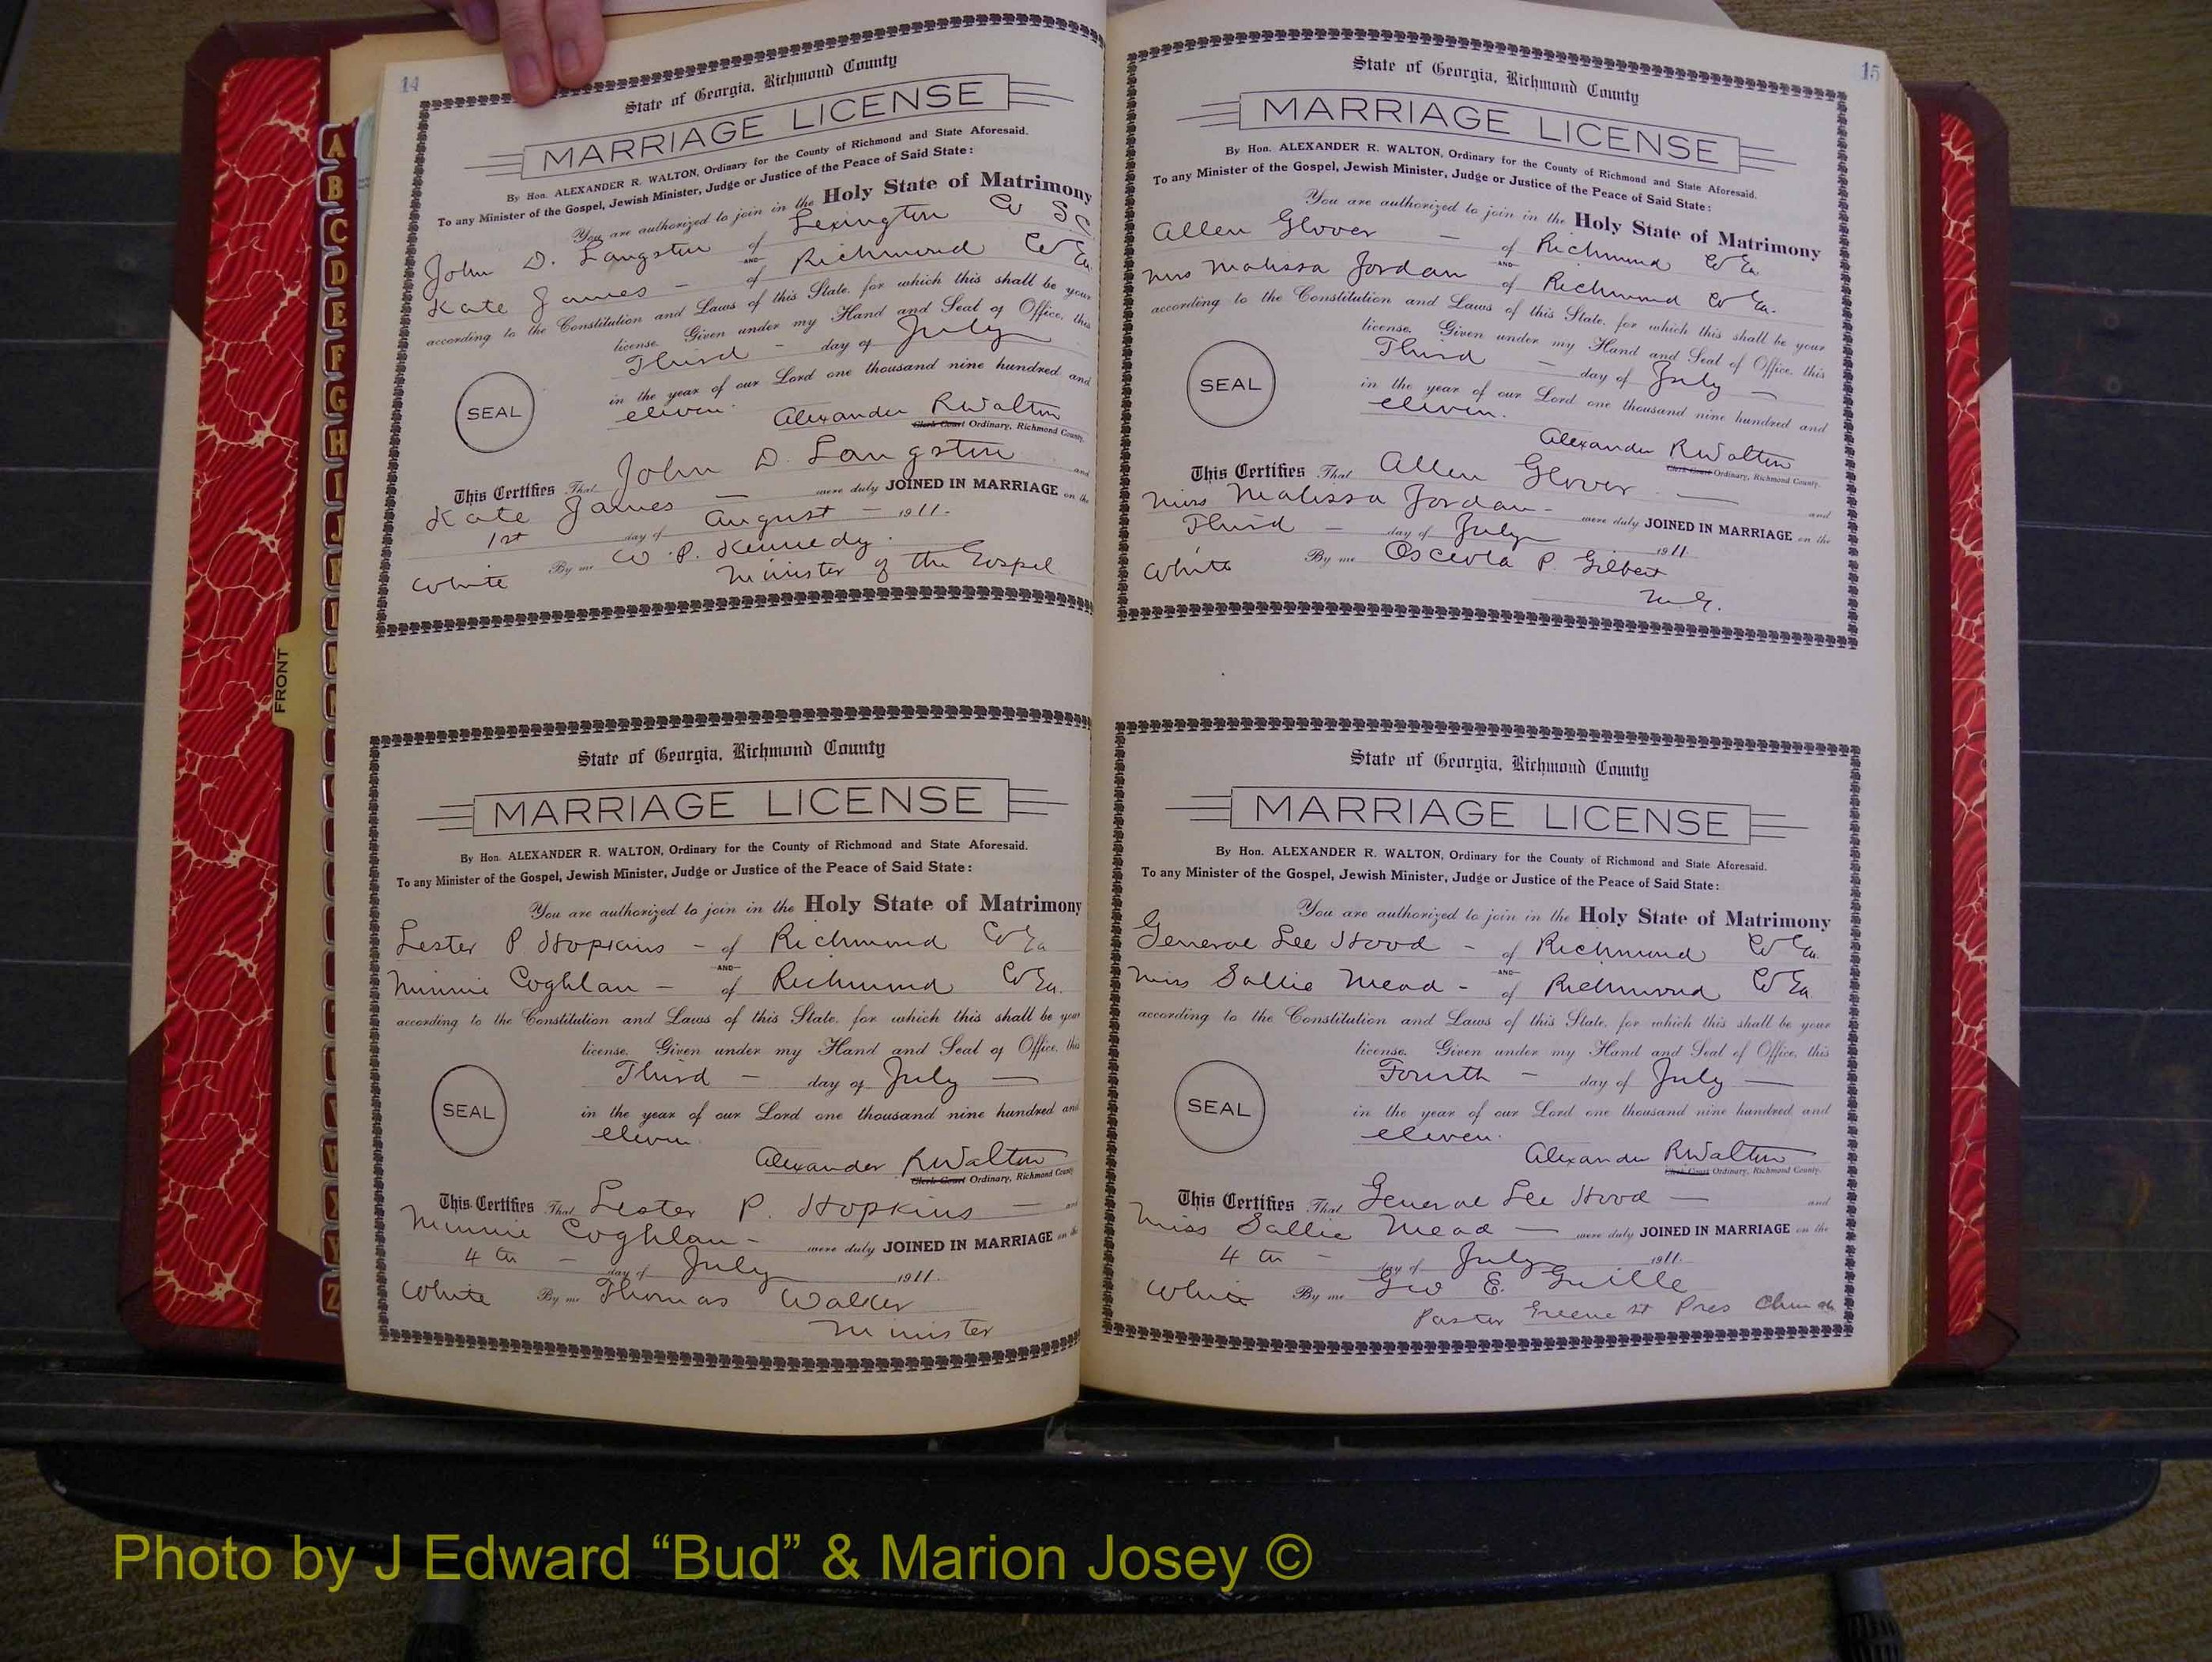 14
State of Georgia, Richmond County
MARRIAGE LICENSE
By Hon. ALEXANDER R. WALTON, Ordinary for the County of Richmond and State Aforesaid.
To any Minister of the Gospel, Jewish Minister, Judge or Justice of the Peace of Said State:
You are authorized to join in the Holy State of Matrimony
John D. Langston of Lexington Co S C
AND
Kate James - of Richmond Co Ga.
according to the Constitution and Laws of this State, for which this shall be your
license. Given under my Hand and Seal of Office, this
Third - day of July
in the year of our Lord one thousand nine hundred and
eleven.
SEAL
Alexander R Walton
Clerk Court Ordinary, Richmond County.
This Certifies That John D. Langston and
Kate James - were duly JOINED IN MARRIAGE on the
1st day of August - 1911.
White By me W. P. Kennedy.
Minister of the Gospel
State of Georgia, Richmond County
MARRIAGE LICENSE
By Hon. ALEXANDER R. WALTON, Ordinary for the County of Richmond and State Aforesaid.
To any Minister of the Gospel, Jewish Minister, Judge or Justice of the Peace of Said State:
You are authorized to join in the Holy State of Matrimony
Lester P Hopkins - of Richmond Co Ga
AND
Minnie Coghlan - of Richmond Co Ga.
according to the Constitution and Laws of this State, for which this shall be your
license. Given under my Hand and Seal of Office, this
Third - day of July -
in the year of our Lord one thousand nine hundred and
eleven.
SEAL
Alexander R Walton
Clerk Court Ordinary, Richmond County
This Certifies That Lester P. Hopkins - and
Minnie Coghlan - were duly JOINED IN MARRIAGE on the
4th - day of July 1911.
White By me Thomas Walker
Minister
15
State of Georgia, Richmond County
MARRIAGE LICENSE
By Hon. ALEXANDER R. WALTON, Ordinary for the County of Richmond and State Aforesaid.
To any Minister of the Gospel, Jewish Minister, Judge or Justice of the Peace of Said State:
You are authorized to join in the Holy State of Matrimony
Allen Glover - of Richmond Co Ga.
AND
Malissa Jordan of Richmond Co Ga.
according to the Constitution and Laws of this State, for which this shall be your
license. Given under my Hand and Seal of Office, this
Third - day of July -
in the year of our Lord one thousand nine hundred and
eleven.
SEAL
Alexander R Walton
Clerk Court Ordinary, Richmond County.
This Certifies That Allen Glover - and
Miss Malissa Jordan - were duly JOINED IN MARRIAGE on the
Third - day of July 1911.
White By me Osceola P. Gilbert
M.G.
State of Georgia, Richmond County
MARRIAGE LICENSE
By Hon. ALEXANDER R. WALTON, Ordinary for the County of Richmond and State Aforesaid.
To any Minister of the Gospel, Jewish Minister, Judge or Justice of the Peace of Said State:
You are authorized to join in the Holy State of Matrimony
General Lee Hood - of Richmond Co Ga.
AND
Miss Sallie Mead - of Richmond Co Ga
according to the Constitution and Laws of this State, for which this shall be your
license. Given under my Hand and Seal of Office, this
Fourth - day of July -
in the year of our Lord one thousand nine hundred and
eleven.
SEAL
Alexander R Walton
Clerk Court Ordinary, Richmond County.
This Certifies That General Lee Hood - and
Miss Sallie Mead - were duly JOINED IN MARRIAGE on the
4th - day of July 1911.
White By me Geo E. Guille
Pastor Greene St Pres Church
FRONT
A
B
C
D
E
F
G
H
I
J
Z
Photo by J Edward “Bud” & Marion Josey ©